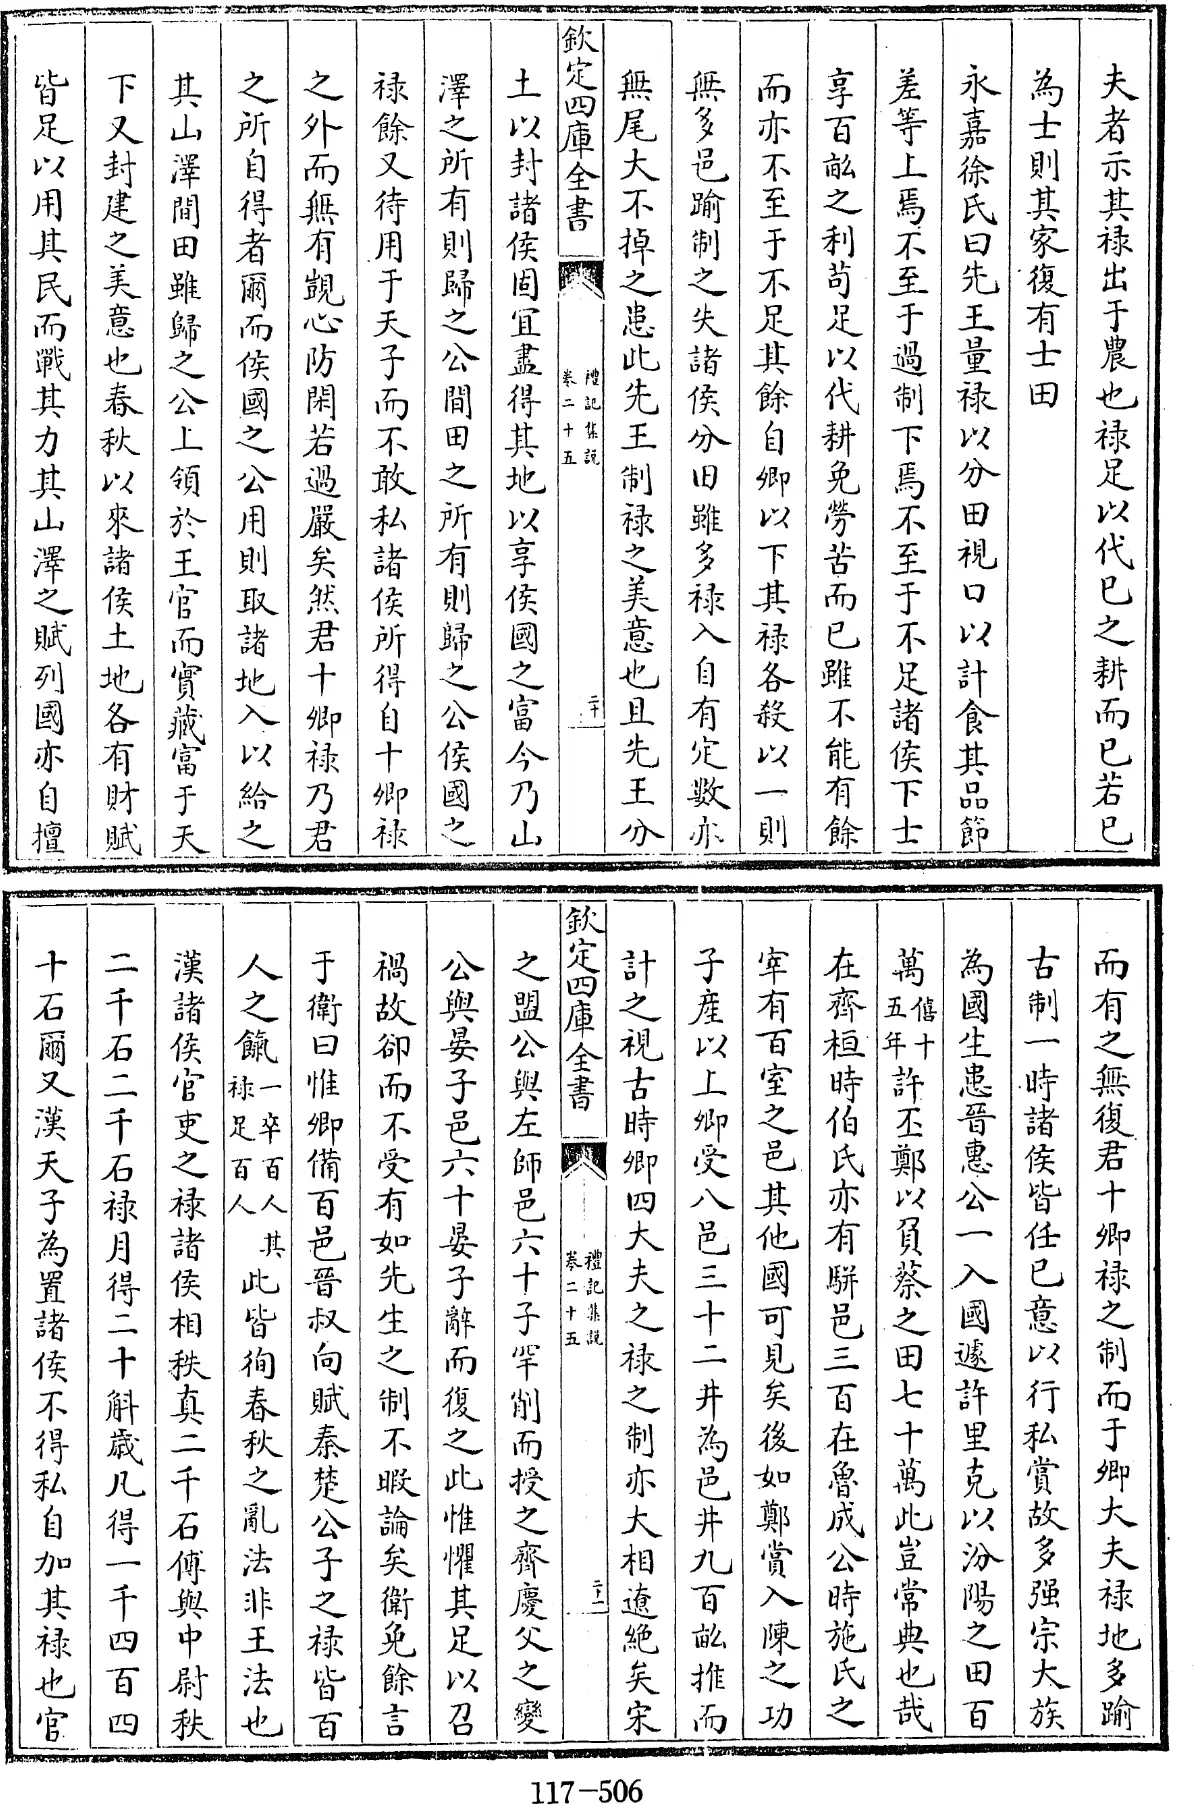 夫者示其祿出于農也祿足以代已之耕而已若已
為士則其家復有士田
永嘉徐氏曰先王量祿以分田視口以計食其品節
差等上焉不至于過制下焉不至于不足諸侯下士
享百畝之利苟足以代耕免勞苦而已雖不能有餘
而亦不至于不足其餘自卿以下其祿各殺以一則
無多邑踰制之失諸侯分田雖多祿入自有定數亦
無尾大不掉之患此先王制祿之美意也且先王分
欽定四庫全書
禮記集說
卷二十五
二十
土以封諸侯固宜盡得其地以享侯國之富今乃山
澤之所有則歸之公間田之所有則歸之公侯國之
祿餘又待用于天子而不敢私諸侯所得自十卿祿
之外而無有覬心防閑若過嚴矣然君十卿祿乃君
之所自得者爾而侯國之公用則取諸地入以給之
其山澤間田雖歸之公上領於王官而實藏富于天
下又封建之美意也春秋以來諸侯土地各有財賦
皆足以用其民而戰其力其山澤之賦列國亦自擅
而有之無復君十卿祿之制而于卿大夫祿地多踰
古制一時諸侯皆任已意以行私賞故多强宗大族
為國生患晉惠公一入國遽許里克以汾陽之田百
萬僖十五年許丕鄭以負蔡之田七十萬此豈常典也哉
在齊桓時伯氏亦有駢邑三百在魯成公時施氏之
宰有百室之邑其他國可見矣後如鄭賞入陳之功
子産以上卿受八邑三十二井為邑井九百畝推而
計之視古時卿四大夫之祿之制亦大相遼絶矣宋
欽定四庫全書
禮記集說
卷二十五
二十一
之盟公與左師邑六十子罕削而授之齊慶父之變
公與晏子邑六十晏子辭而復之此惟懼其足以召
禍故卻而不受有如先生之制不暇論矣衛免餘言
于衛曰惟卿備百邑晉叔向賦秦楚公子之祿皆百
人之餼一卒百人其祿足百人此皆徇春秋之亂法非王法也
漢諸侯官吏之祿諸侯相秩真二千石傅與中尉秩
二千石二千石祿月得二十斛歲凡得一千四百四
十石爾又漢天子為置諸侯不得私自加其祿也官
117-506